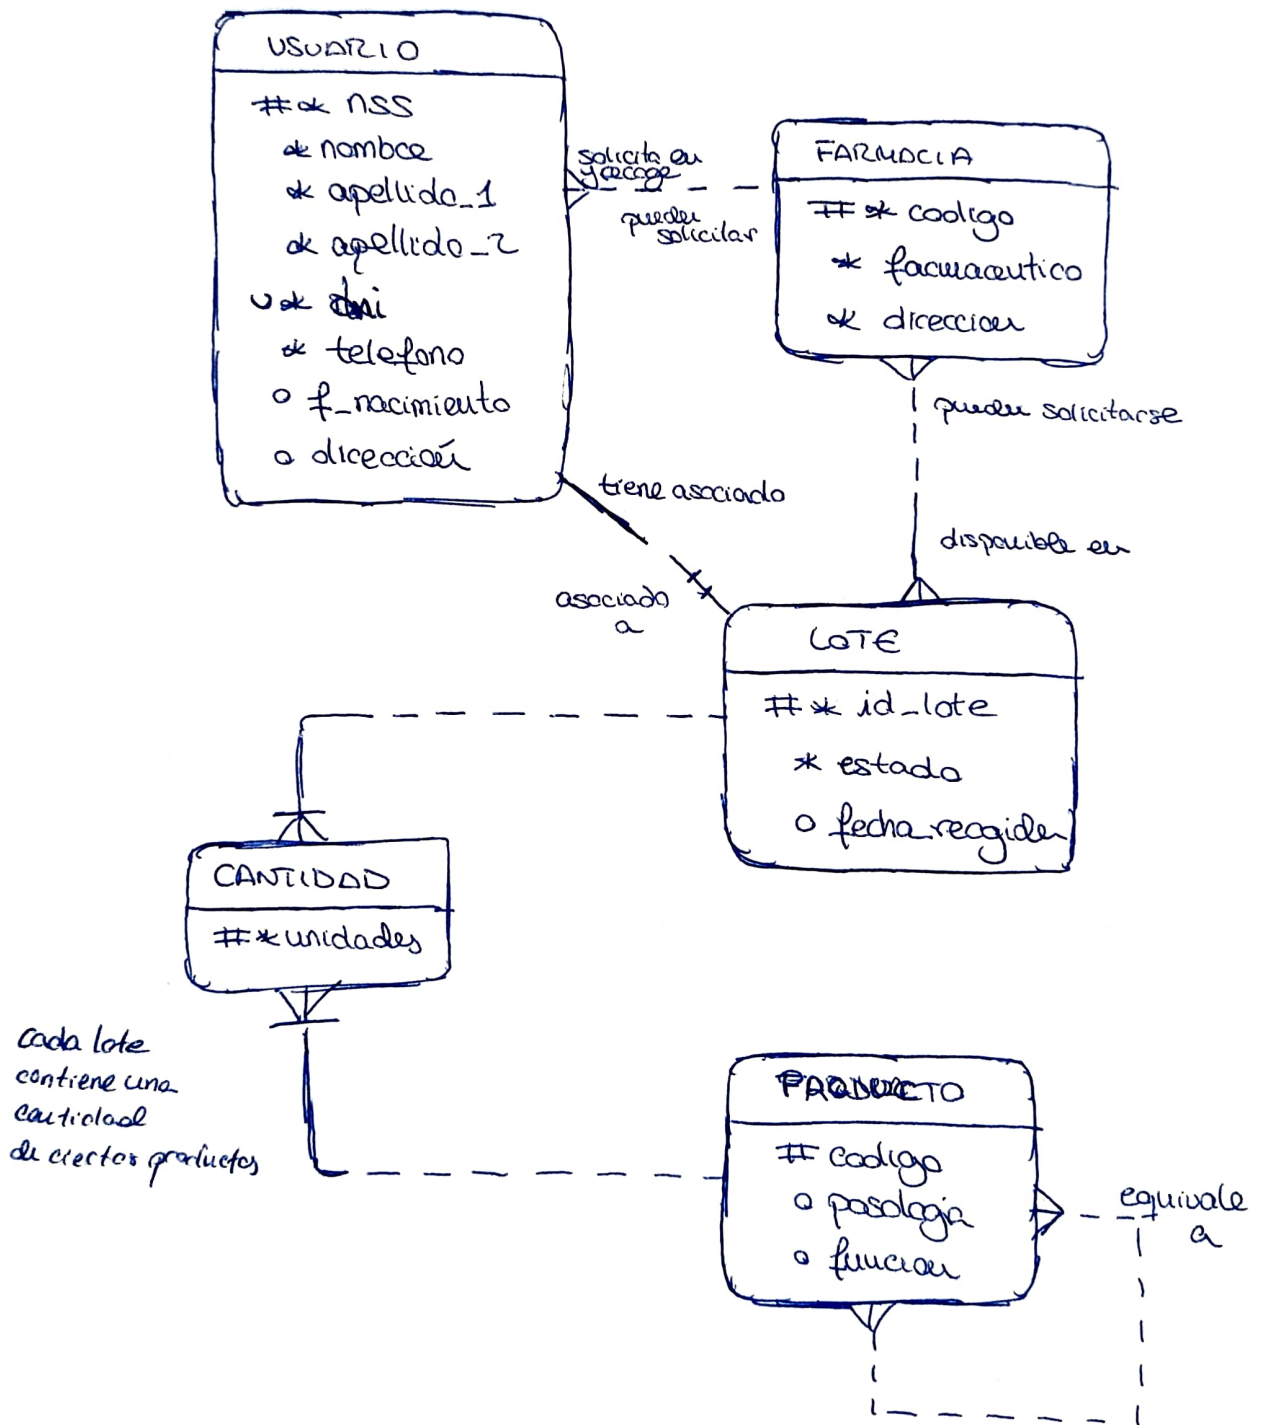 USUARIO
#* nss
* nombre
* apellido_1
* apellido_2
U* dni
* telefono
o f_nacimiento
o dirección
solicita en
y recoge
pueden
solicitar
FARMACIA
#* codigo
* farmaceutico
* direccion
pueden solicitarse
disponible en
tiene asociado
asociado
a
LOTE
#* id_lote
* estado
o fecha_recogida
CANTIDAD
#* unidades
cada lote
contiene una
cantidad
de ciertos productos
PRODUCTO
# codigo
o posologia
o funcion
equivale
a